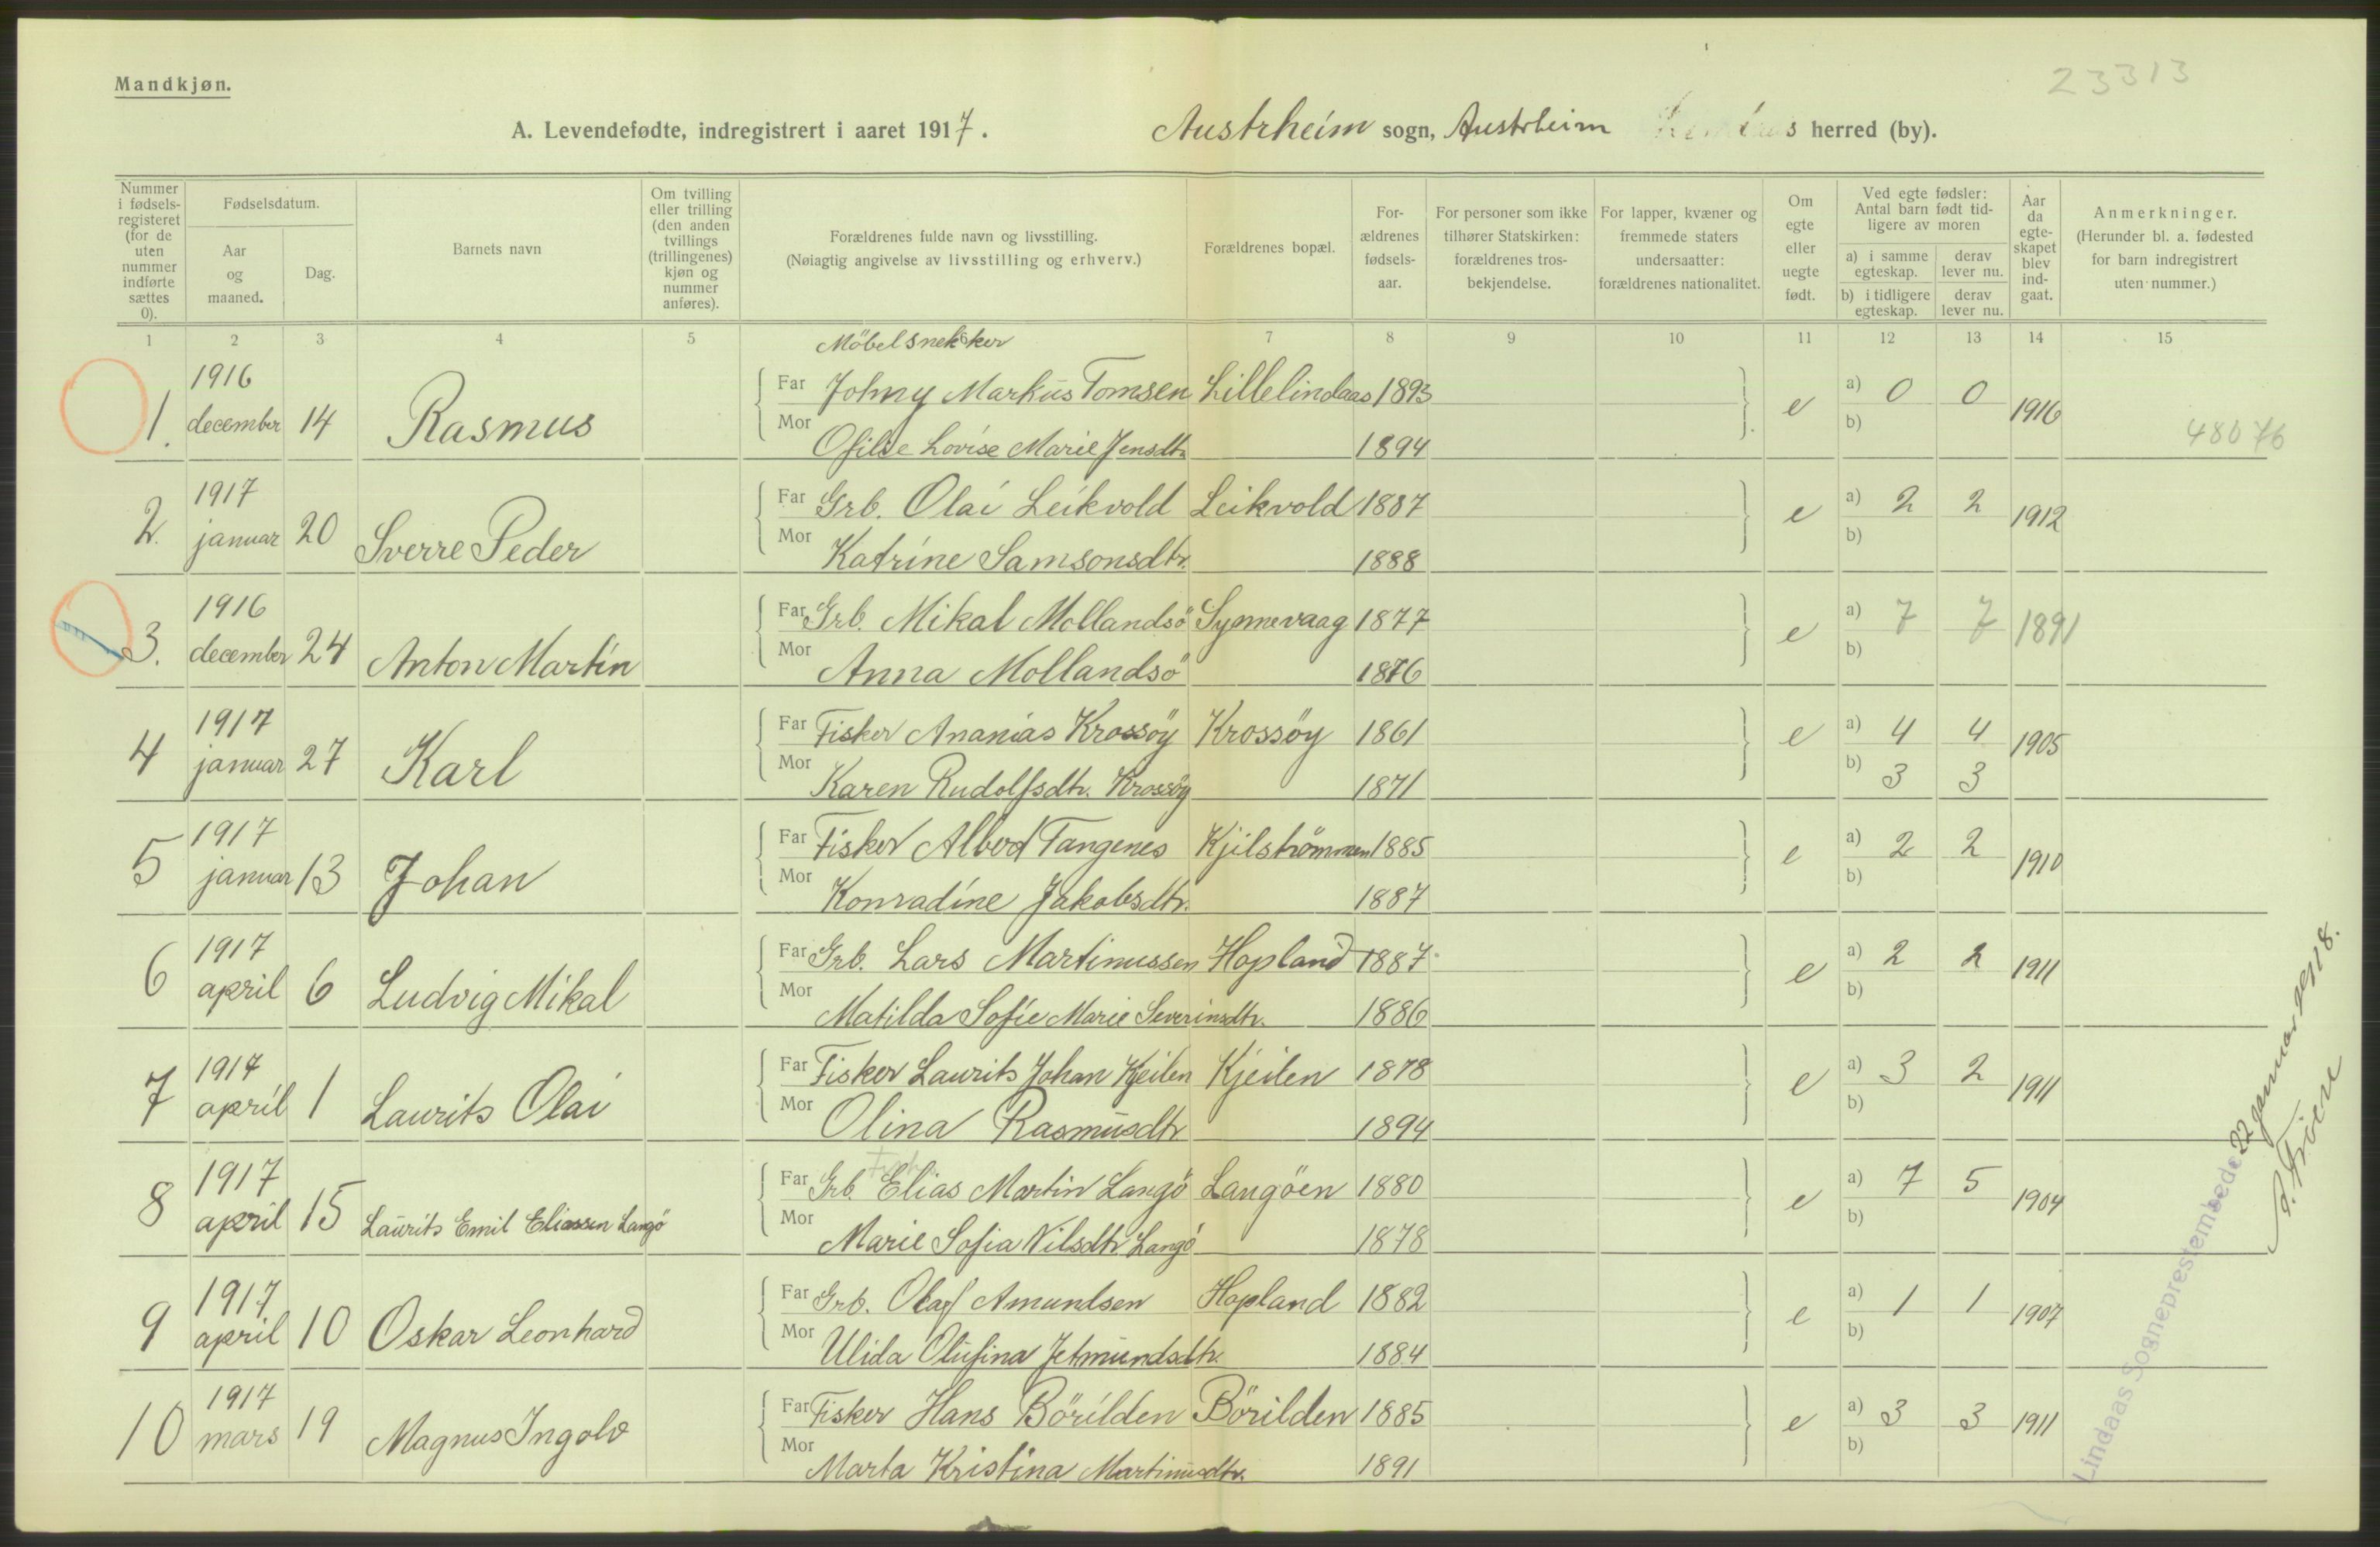 23313
Mandkjøn.
A. Levendefødte, indregistrert i aaret 1917. Austrheim sogn, Austrheim herred (by).
Nummer i fødselsregisteret (for de uten nummer indførte sættes 0).
Fødselsdatum.
Aar og maaned.
Dag.
Barnets navn
Om tvilling eller trilling (den anden tvillings (trillingenes) kjøn og nummer anføres).
Forældrenes fulde navn og livsstilling.
(Nøiagtig angivelse av livsstilling og erhverv.)
Forældrenes bopæl.
Forældrenes fødselsaar.
For personer som ikke tilhører Statskirken: forældrenes trosbekjendelse.
For lapper, kvæner og fremmede staters undersaatter: forældrenes nationalitet.
Om egte eller uegte født.
Ved egte fødsler: Antal barn født tidligere av moren
a) i samme egteskap. derav lever nu.
b) i tidligere egteskap. derav lever nu.
Aar da egteskapet blev indgaat.
Anmerkninger.
(Herunder bl. a. fødested for barn indregistrert uten nummer.)
1 2 3 4 5 7 8 9 10 11 12 13 14 15
Möbelsnekker
1. 1916 december 14 Rasmus Far Johny Markus Tomsen Lillelindaas 1893 e a) 0 0 1916
Mor Ofilde Lovise Marie Jensdtr. 1894 b) 48076
2. 1917 januar 20 Sverre Peder Far Grb. Olai Leikvold Leikvold 1887 e a) 2 2 1912
Mor Katrine Samsonsdtr. 1888 b)
3. 1916 december 24 Anton Martin Far Grb. Mikal Mollandsö Synnevaag 1877 e a) 7 7 1891
Mor Anna Mollandsö 1876 b)
4 1917 januar 27 Karl Far Fisker Ananias Krossöy Krossöy 1861 e a) 4 4 1905
Mor Karen Rudolfsdtr. Krossöy 1871 b) 3 3
5 1917 januar 13 Johan Far Fisker Albert Tangenes Kjilströmmen 1885 e a) 2 2 1910
Mor Konradine Jakobsdtr. 1887 b)
6 1917 april 6 Ludvig Mikal Far Grb. Lars Martinussen Hopland 1887 e a) 2 2 1911
Mor Matilda Sofie Marie Severinsdtr. 1886 b)
7 1917 april 1 Laurits Olai Far Fisker Laurits Johan Kjeilen Kjeilen 1878 e a) 3 2 1911
Mor Olina Rasmusdtr 1894 b)
8 1917 april 15 Laurits Emil Eliassen Langö Far Grb. Elias Martin Langö Langöen 1880 e a) 7 5 1904
Mor Marie Sofia Nilsdtr Langö 1878 b)
9 1917 april 10 Oskar Leonhard Far Grb. Olaf Amundsen Hopland 1882 e a) 1 1 1907
Mor Ulida Olufina Jetmundsdtr. 1884 b)
10 1917 mars 19 Magnus Ingolv Far Fisker Hans Börilden Börilden 1885 e a) 3 3 1911
Mor Marta Kristina Martinusdtr. 1891 b)
Lindaas Sogneprestembede 22 januar 1918.